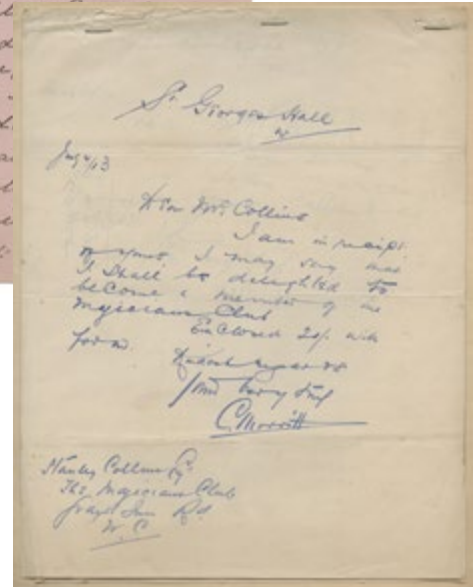 St Georges Hall
W
Dear Mr. Collins
I am in receipt
of yours, I may say that
I shall be delighted to
become a member of the
Magicians Club
Enclosed 20/- with
form.
Kindest regards
yours very truly
C Morritt
Stanley Collins Esq.
The Magicians Club
Grays Inn Rd.
W. C